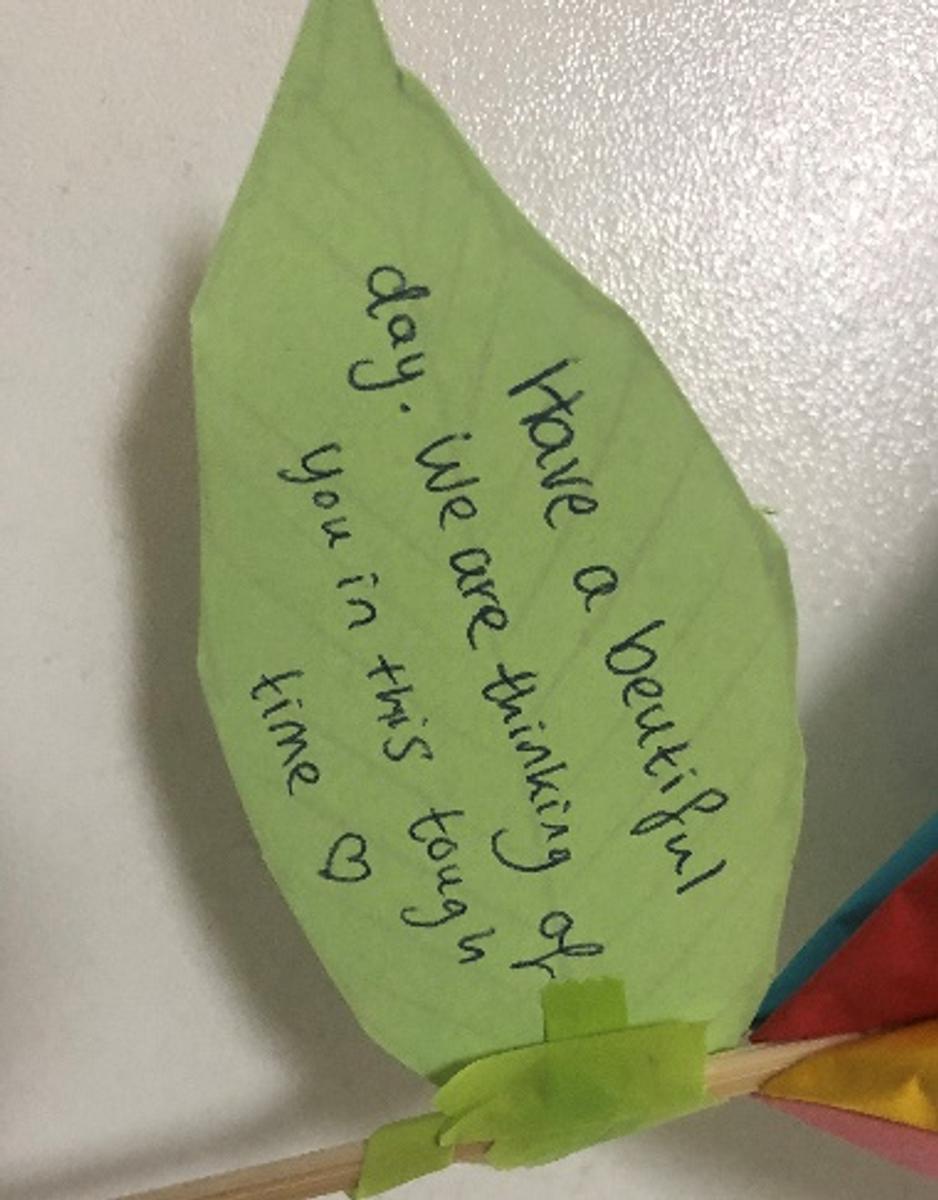 Have a beutiful
day. We are thinking of
you in this tough
time ♡